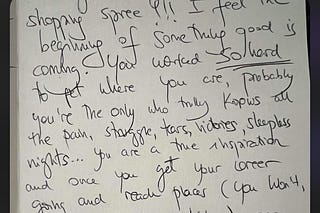 shopping spree!!! I feel the
beginning of something good is
coming. You worked so hard
to get where you are, probably
you're the only who truly knows all
the pain, struggle, tears, victories, sleepless
nights... you are a true inspiration
and once you get your career
going and reach places (you won't,